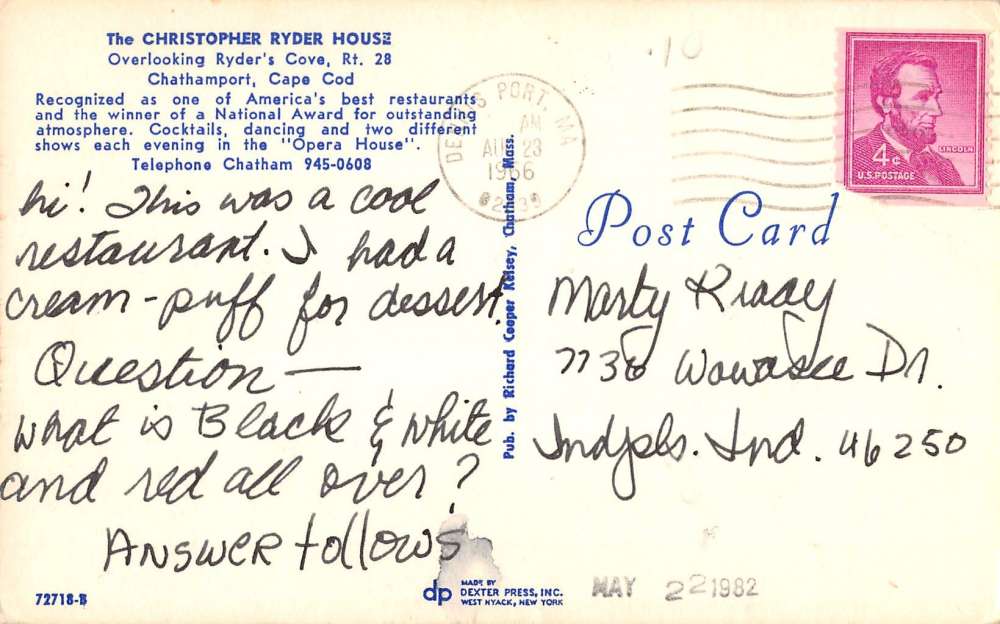 The CHRISTOPHER RYDER HOUSE
Overlooking Ryder's Cove, Rt. 28
Chathamport, Cape Cod
Recognized as one of America's best restaurants
and the winner of a National Award for outstanding
atmosphere. Cocktails, dancing and two different
shows each evening in the "Opera House".
Telephone Chatham 945-0608
hi! This was a cool
restaurant. I had a
cream-puff for dessert.
Question —
what is Black & white
and red all over?
ANSWER follows
72718-B
Pub. by Richard Cooper Kelsey, Chatham, Mass.
dp
MADE BY
DEXTER PRESS, INC.
WEST NYACK, NEW YORK
PORT, MA
AM
AUG 23
1966
4¢
LINCOLN
U.S. POSTAGE
.10
Post Card
Marty
7736 Wawasee Dr.
Indpls. Ind. 46250
MAY 22 1982